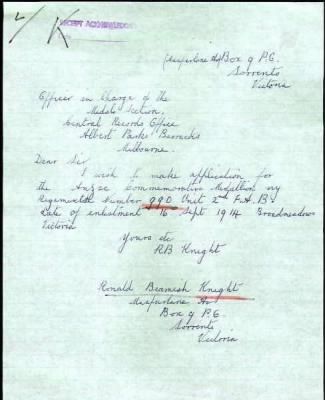 L/K
RECEIPT ACKNOWLEDGED
(Macfarlane Av) Box 9 P.O.
Sorrento
Victoria
Officer in Charge of the
Medals Section,
Central Records Office
Albert Park Barracks
Melbourne.
Dear Sir
I wish to make application for
the Anzac Commemorative Medallion my
Regimental Number 990 Unit 2nd F.A.B.
Date of enlistment 16 Sept 1914 Broadmeadows
Victoria
Yours etc
RB Knight
Ronald Beamish Knight
Macfarlane Av
Box 9 P.O.
Sorrento
Victoria